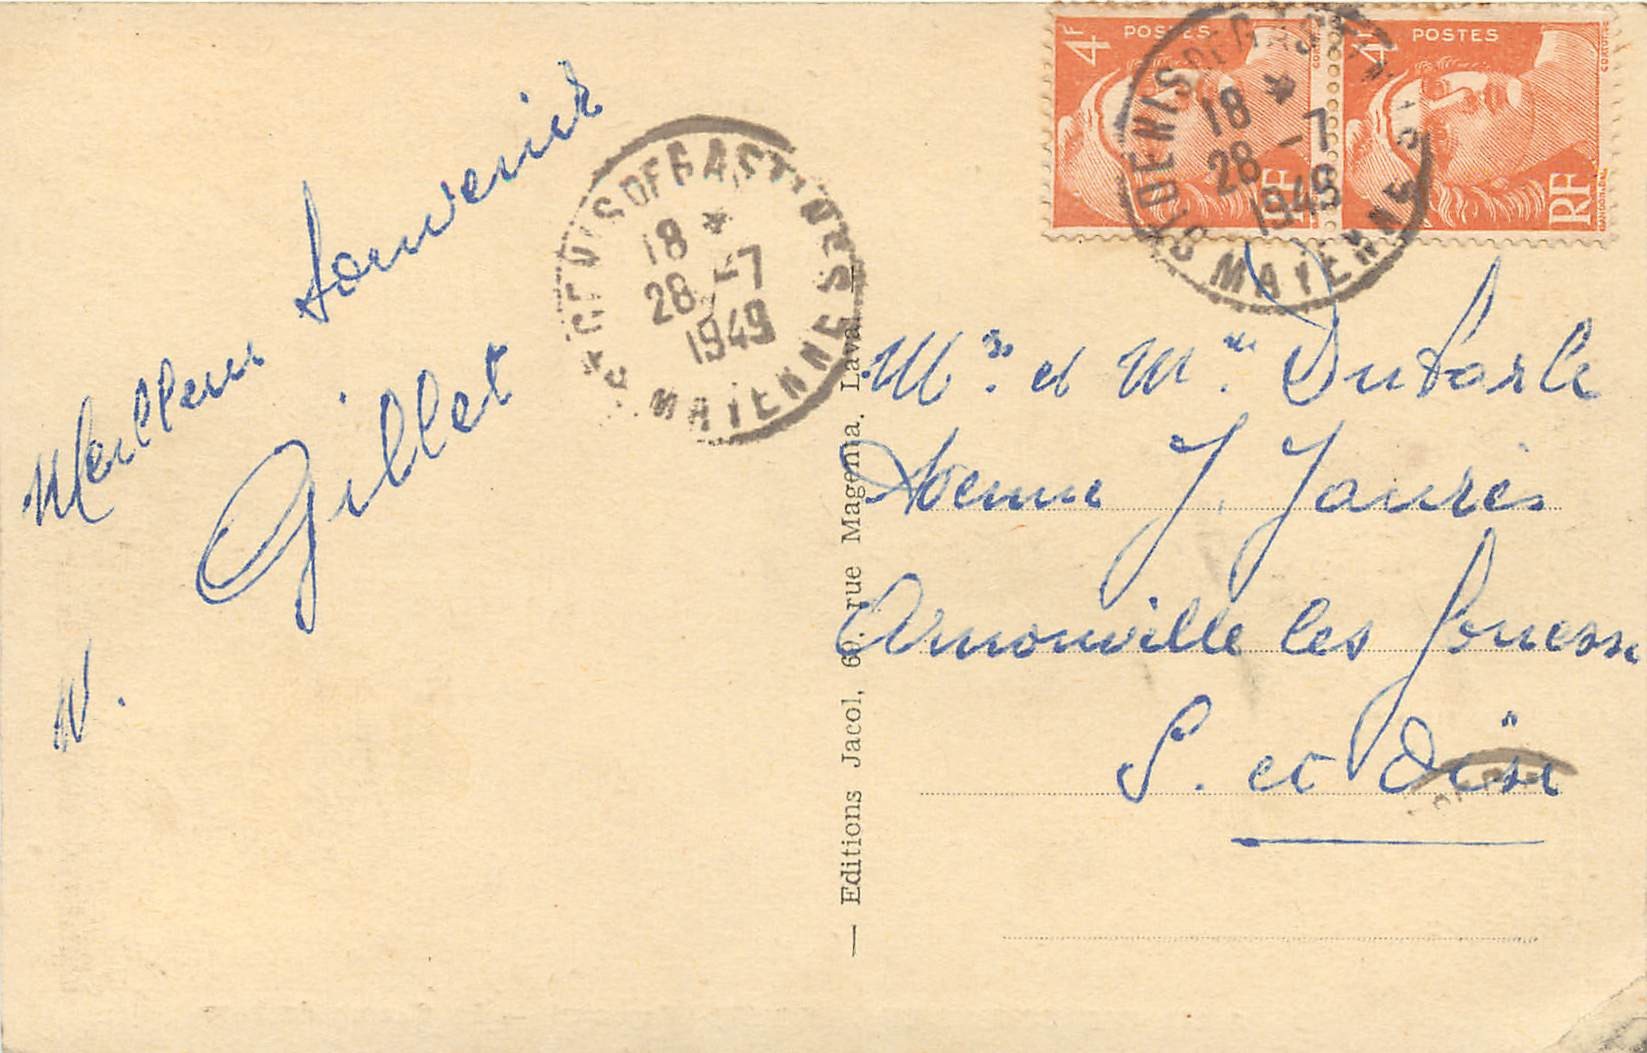 4F POSTES RF
4F POSTES RF
ST DENIS DE GASTINES
18 *
28 -7
1949
MAYENNE
ST DENIS DE GASTINES
18 *
28 -7
1949
MAYENNE
Meilleur souvenir
Gillet
Mr et Mme Dubarle
Avenue J. Jaurès
Arnouville les Gonesse
S. et Oise
— Editions Jacol, 60, rue Magenta. Laval —